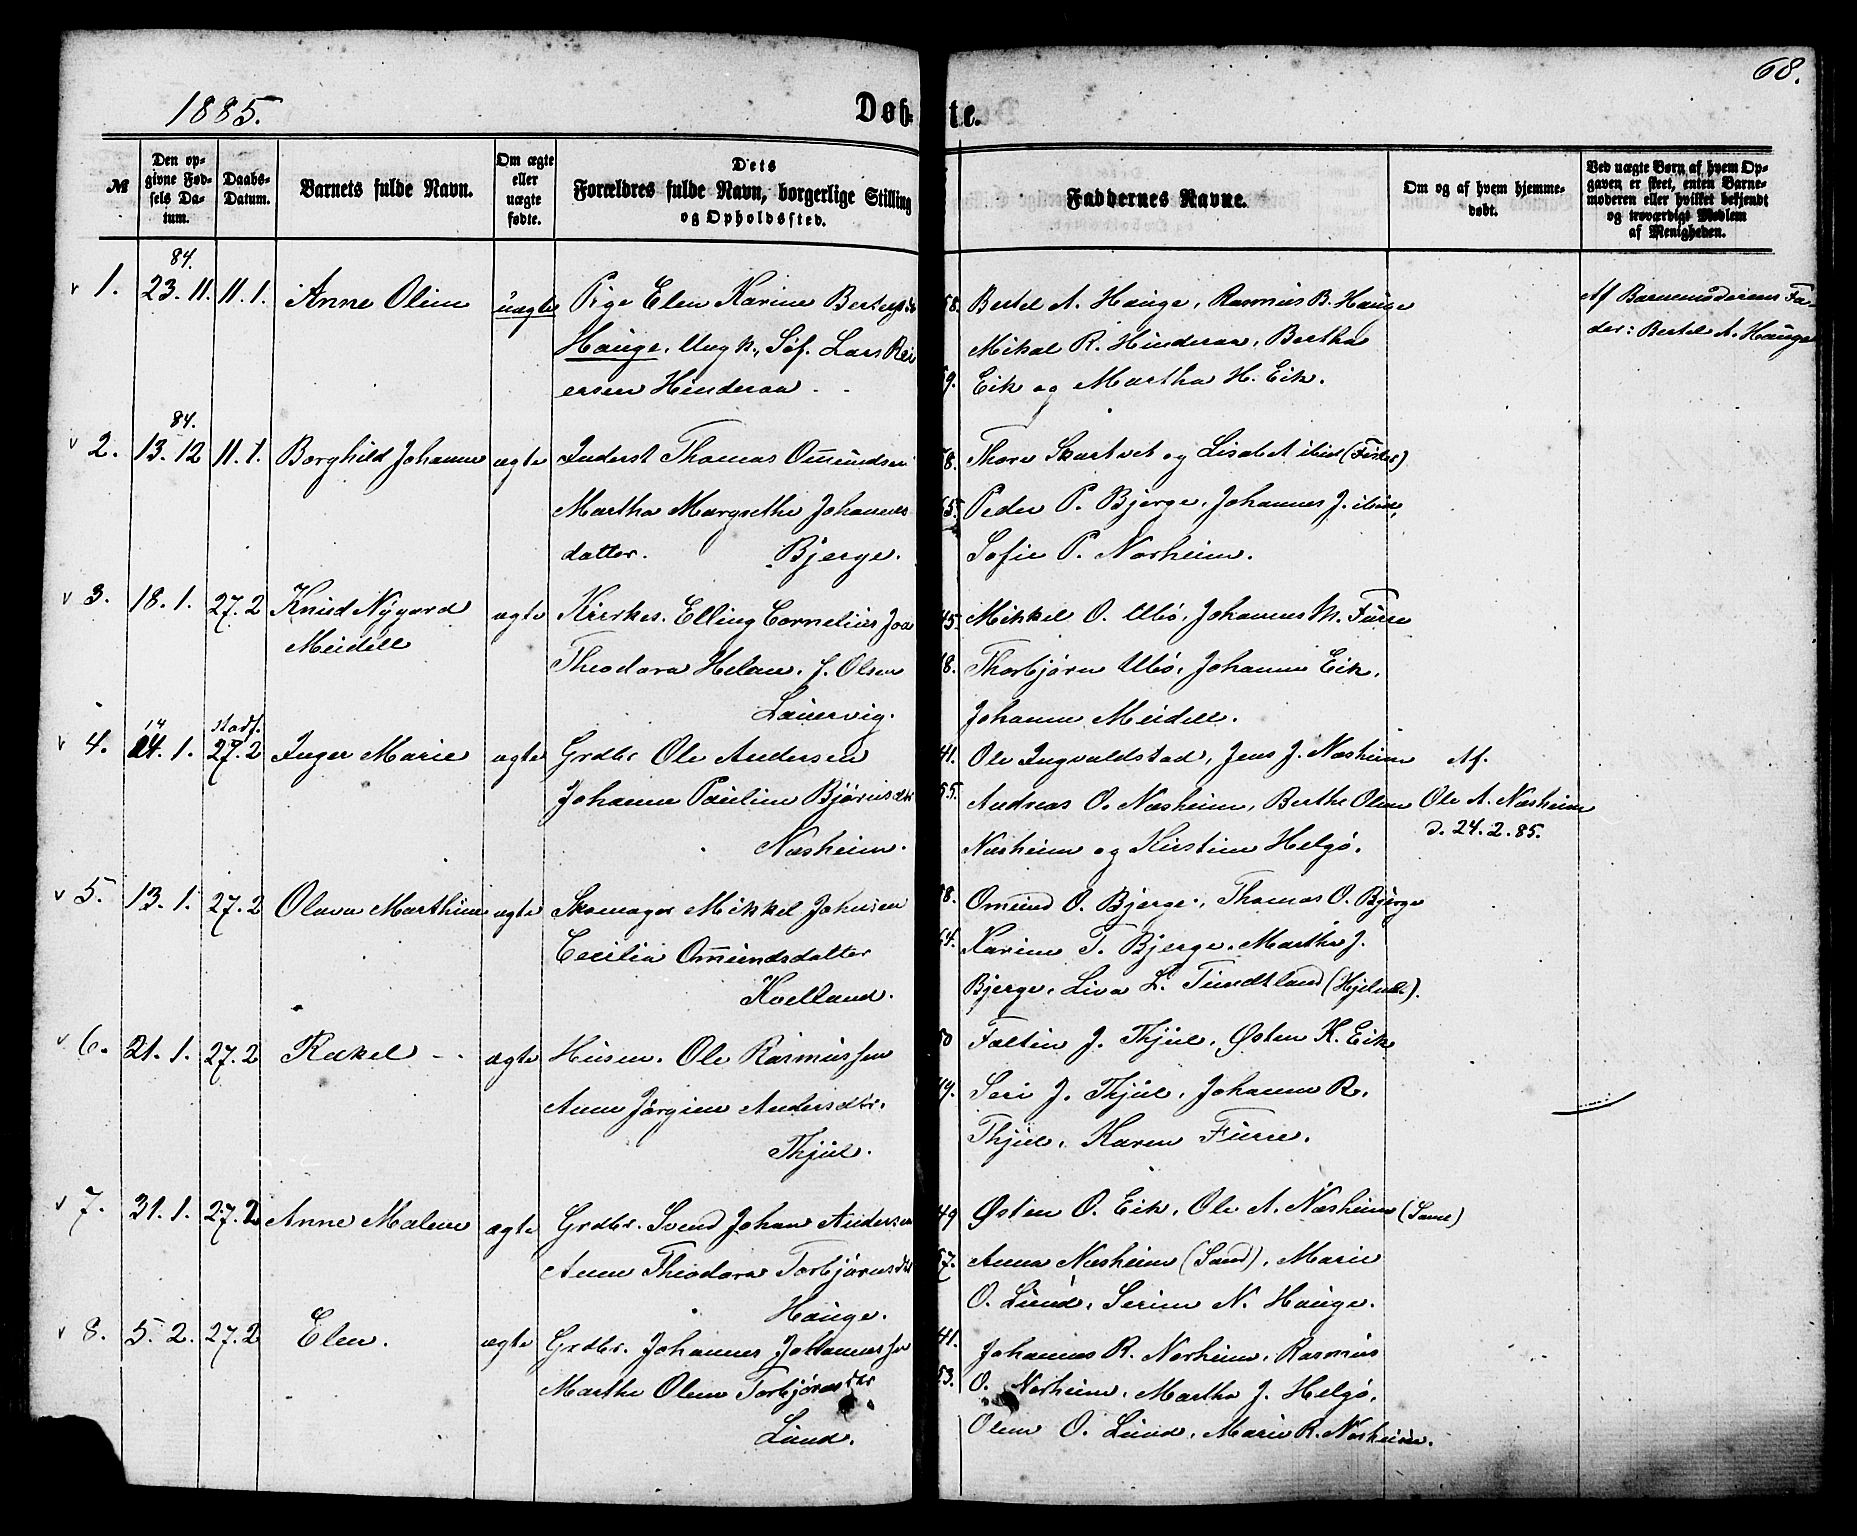 68.
1885.
Døb- te.
№
Den opgivne Fødsels Datum.
Daabs-Datum.
Barnets fulde Navn.
Om ægte eller uægte fødte.
Dets Forældres fulde Navn, borgerlige Stilling og Opholdssted.
Faddernes Navne.
Om og af hvem hjemmedøbt.
Ved uægte Børn af hvem Opgaven er skeet, enten Barnemoderen eller hvilket bekjendt og troværdigt Medlem af Menigheden.
84.
1. 23. 11. 11. 1. Anne Oline uægte Pige Elen Karine
58. Bertel A. Hauge, Rasmus B. Hauge
Af Barnemoderens Fader: Bertel A. Hauge
Hauge, Ungk., Søf. Lars Rei
Mikal R. Hinderaa, Bertha
ersen Hinderaa
59. Eik og Martha H. Eik.
84.
2. 13. 12 11. 1. Borghild Johanne ægte Inderst Thomas Omundsen
58. Thore Skartvet og Lisabet ibid (Fister)
Martha Margrethe Johannes
65. Peder P. Bjerge, Johannes J. ibid,
datter. Bjerge.
Sofie P. Norheim.
3. 18. 1. 27. 2 Knud Nygaard ægte Kirkes. Elling Cornelius Joa
45. Mikkel O. Ubø, Johannes M. Furre
Meidell
Theodora Helene, f. Olsen
48. Thorbjørn Ubø, Johanne Eik,
Lauervig.
Johanne Meidell.
14 stadf.
4. 24. 1. 27. 2 Inger Marie ægte Grdbr Ole Andersen
41. Ole Ingvaldstad, Jens J. Næsheim Af.
Johanne Pauline Bjørnsdtr
55. Andreas O. Næsheim, Berthe Olene Ole A. Næsheim
d. 24. 2. 85.
Næsheim.
Næsheim og Kirstine Helgø.
5. 13. 1. 27. 2 Olava Marthine ægte Skomager Mikkel Johnsen
58. Omund O. Bjerge, Thomas O. Bjerge
Cecilia Omundsdatter
64. Karine T. Bjerge, Martha J.
Kvelland.
Bjerge, Liva L. Tundtland (Hjelml.).
6. 21. 1. 27. 2 Rakel ægte Husm. Ole Rasmussen
50 Faltin J. Thjul, Østen K. Eik
Anne Jørgine Andersdtr.
49. Seri J. Thjul, Johanne R.
Thjul.
Thjul, Karen Furre.
7. 31. 1. 27. 2 Anne Malene ægte Grdbr. Svend Johan Andersen
49 Østen O. Eik, Ole A. Næsheim (Sand)
Anne Theodora Torbjørnsdtr
57. Anna Næsheim (Sand), Marie
Hauge.
O. Lund, Serine N. Hauge.
8. 5. 2. 27. 2 Elen. ægte Grdbr. Johannes Johannessen
41. Johannes R. Norheim, Rasmus
Marthe Olene Torbjørnsdtr
53. O. Norheim, Martha J. Helgø,
Lund.
Olene O. Lund, Marie R. Norheim.